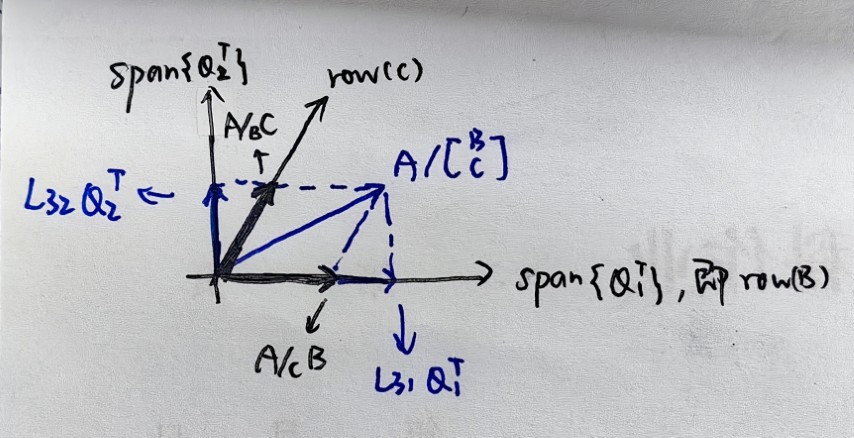 span{Q₂ᵀ}
row(C)
A/_B C
A/[B C]
L₃₂ Q₂ᵀ
span{Q₁ᵀ}, 即 row(B)
A/_C B
L₃₁ Q₁ᵀ